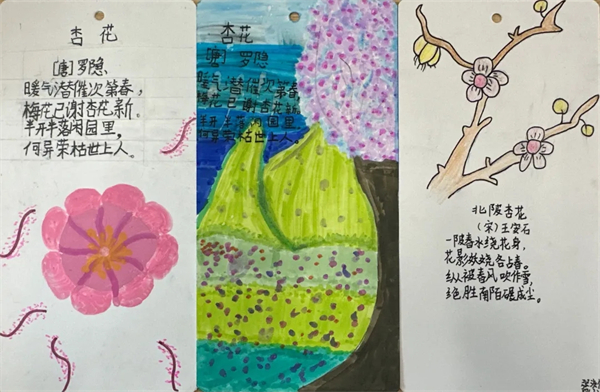 杏花
[唐]罗隐
暖气潜催次第春,
梅花已谢杏花新.
半开半落闲园里,
何异荣枯世上人.
杏花
[唐]罗隐
暖气潜催次第春
梅花已谢杏花新
半开半落闲园里
何异荣枯世上人
北陂杏花
(宋)王安石
一陂春水绕花身,
花影妖娆各占春。
纵被春风吹作雪,
绝胜南陌碾成尘。